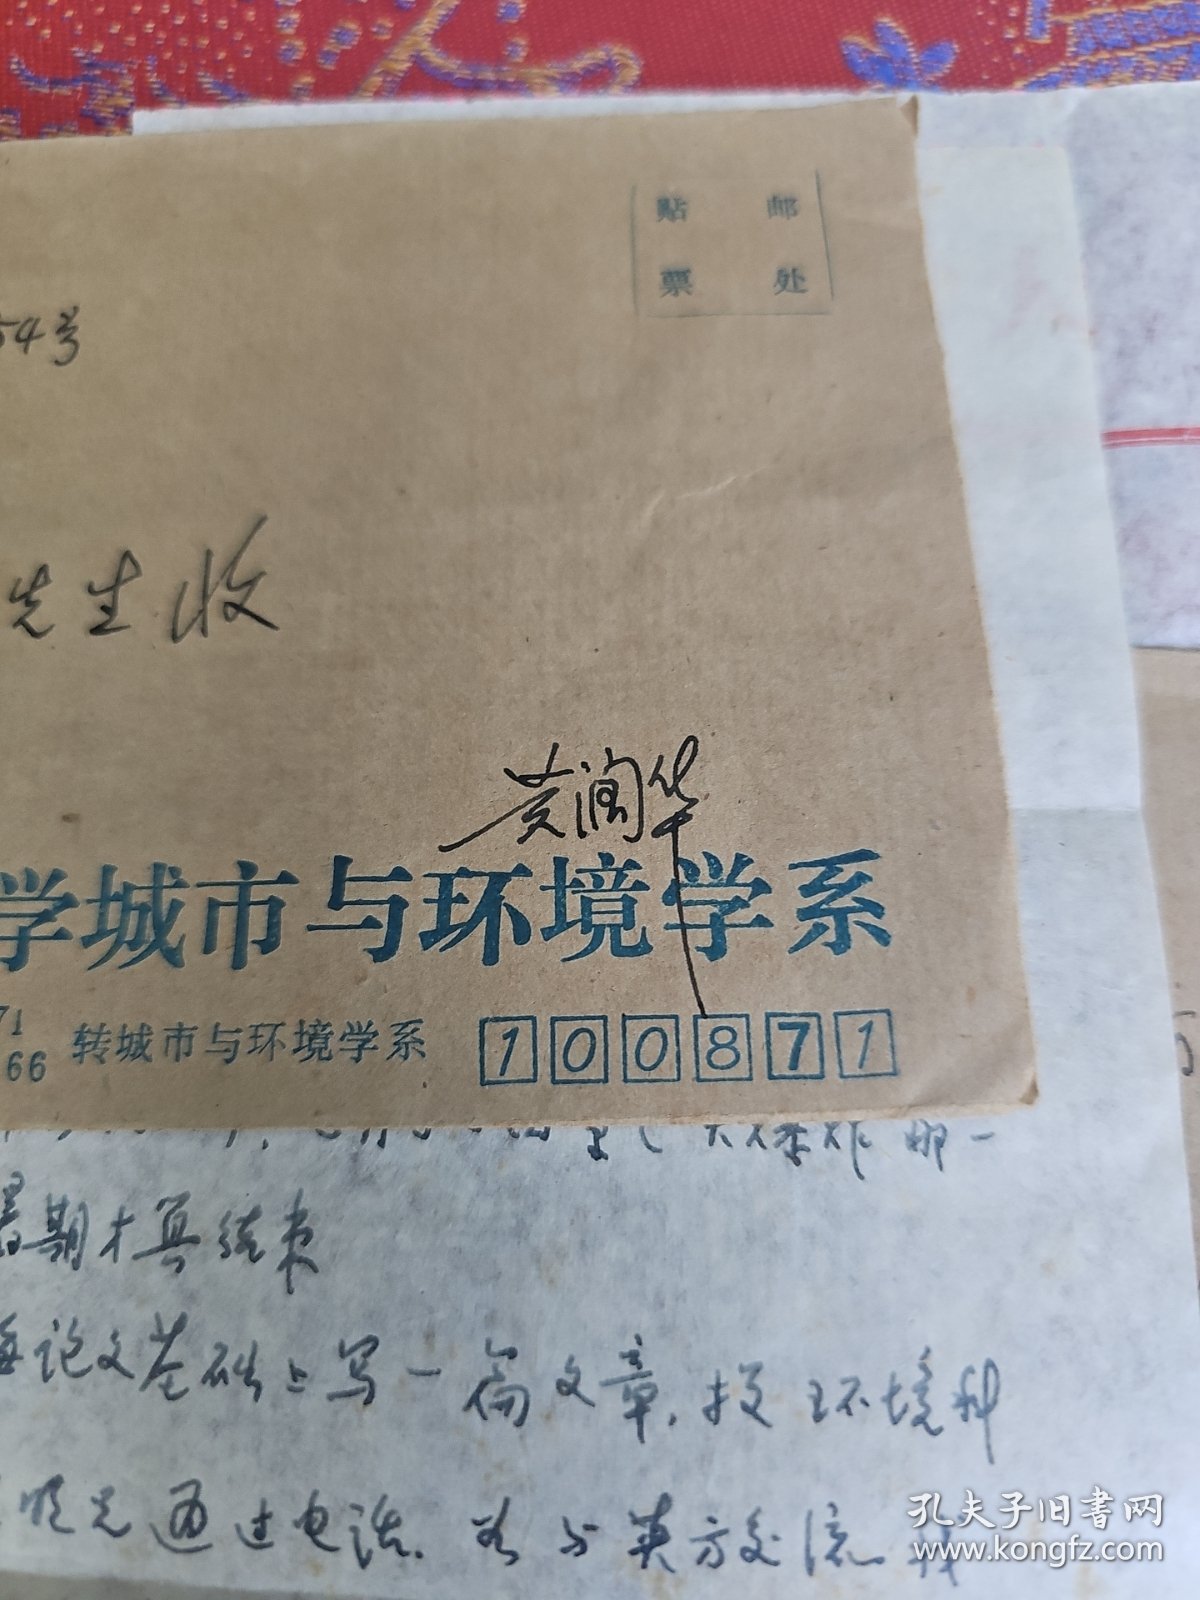 贴 邮
票 处
54号
先生收
黄润华
学城市与环境学系
71
66 转城市与环境学系 100871
暑期才算结束
论文基础上写一篇文章,投环境科
通过电话.
与英方交流
孔夫子旧书网
www.kongfz.com